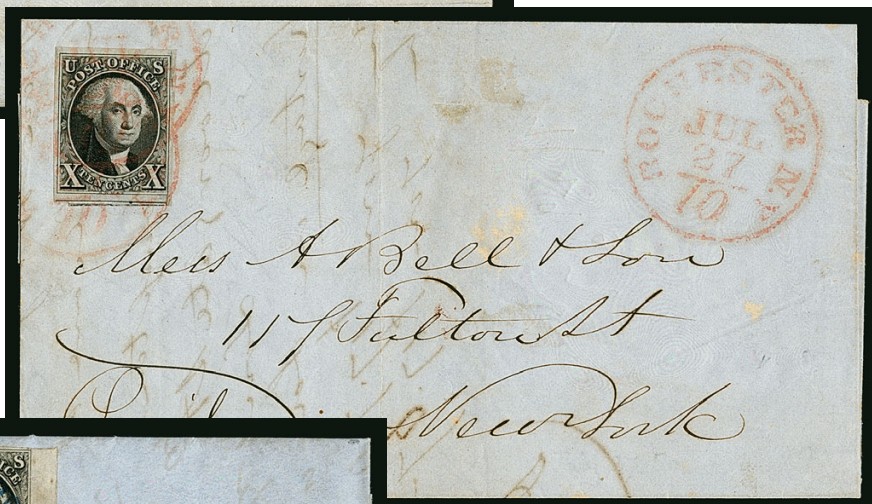 U S
POST OFFICE
X TEN CENTS X
ROCHESTER N.Y
JUL
27
10
Mess A Bell & Son
117 Fulton St
New York